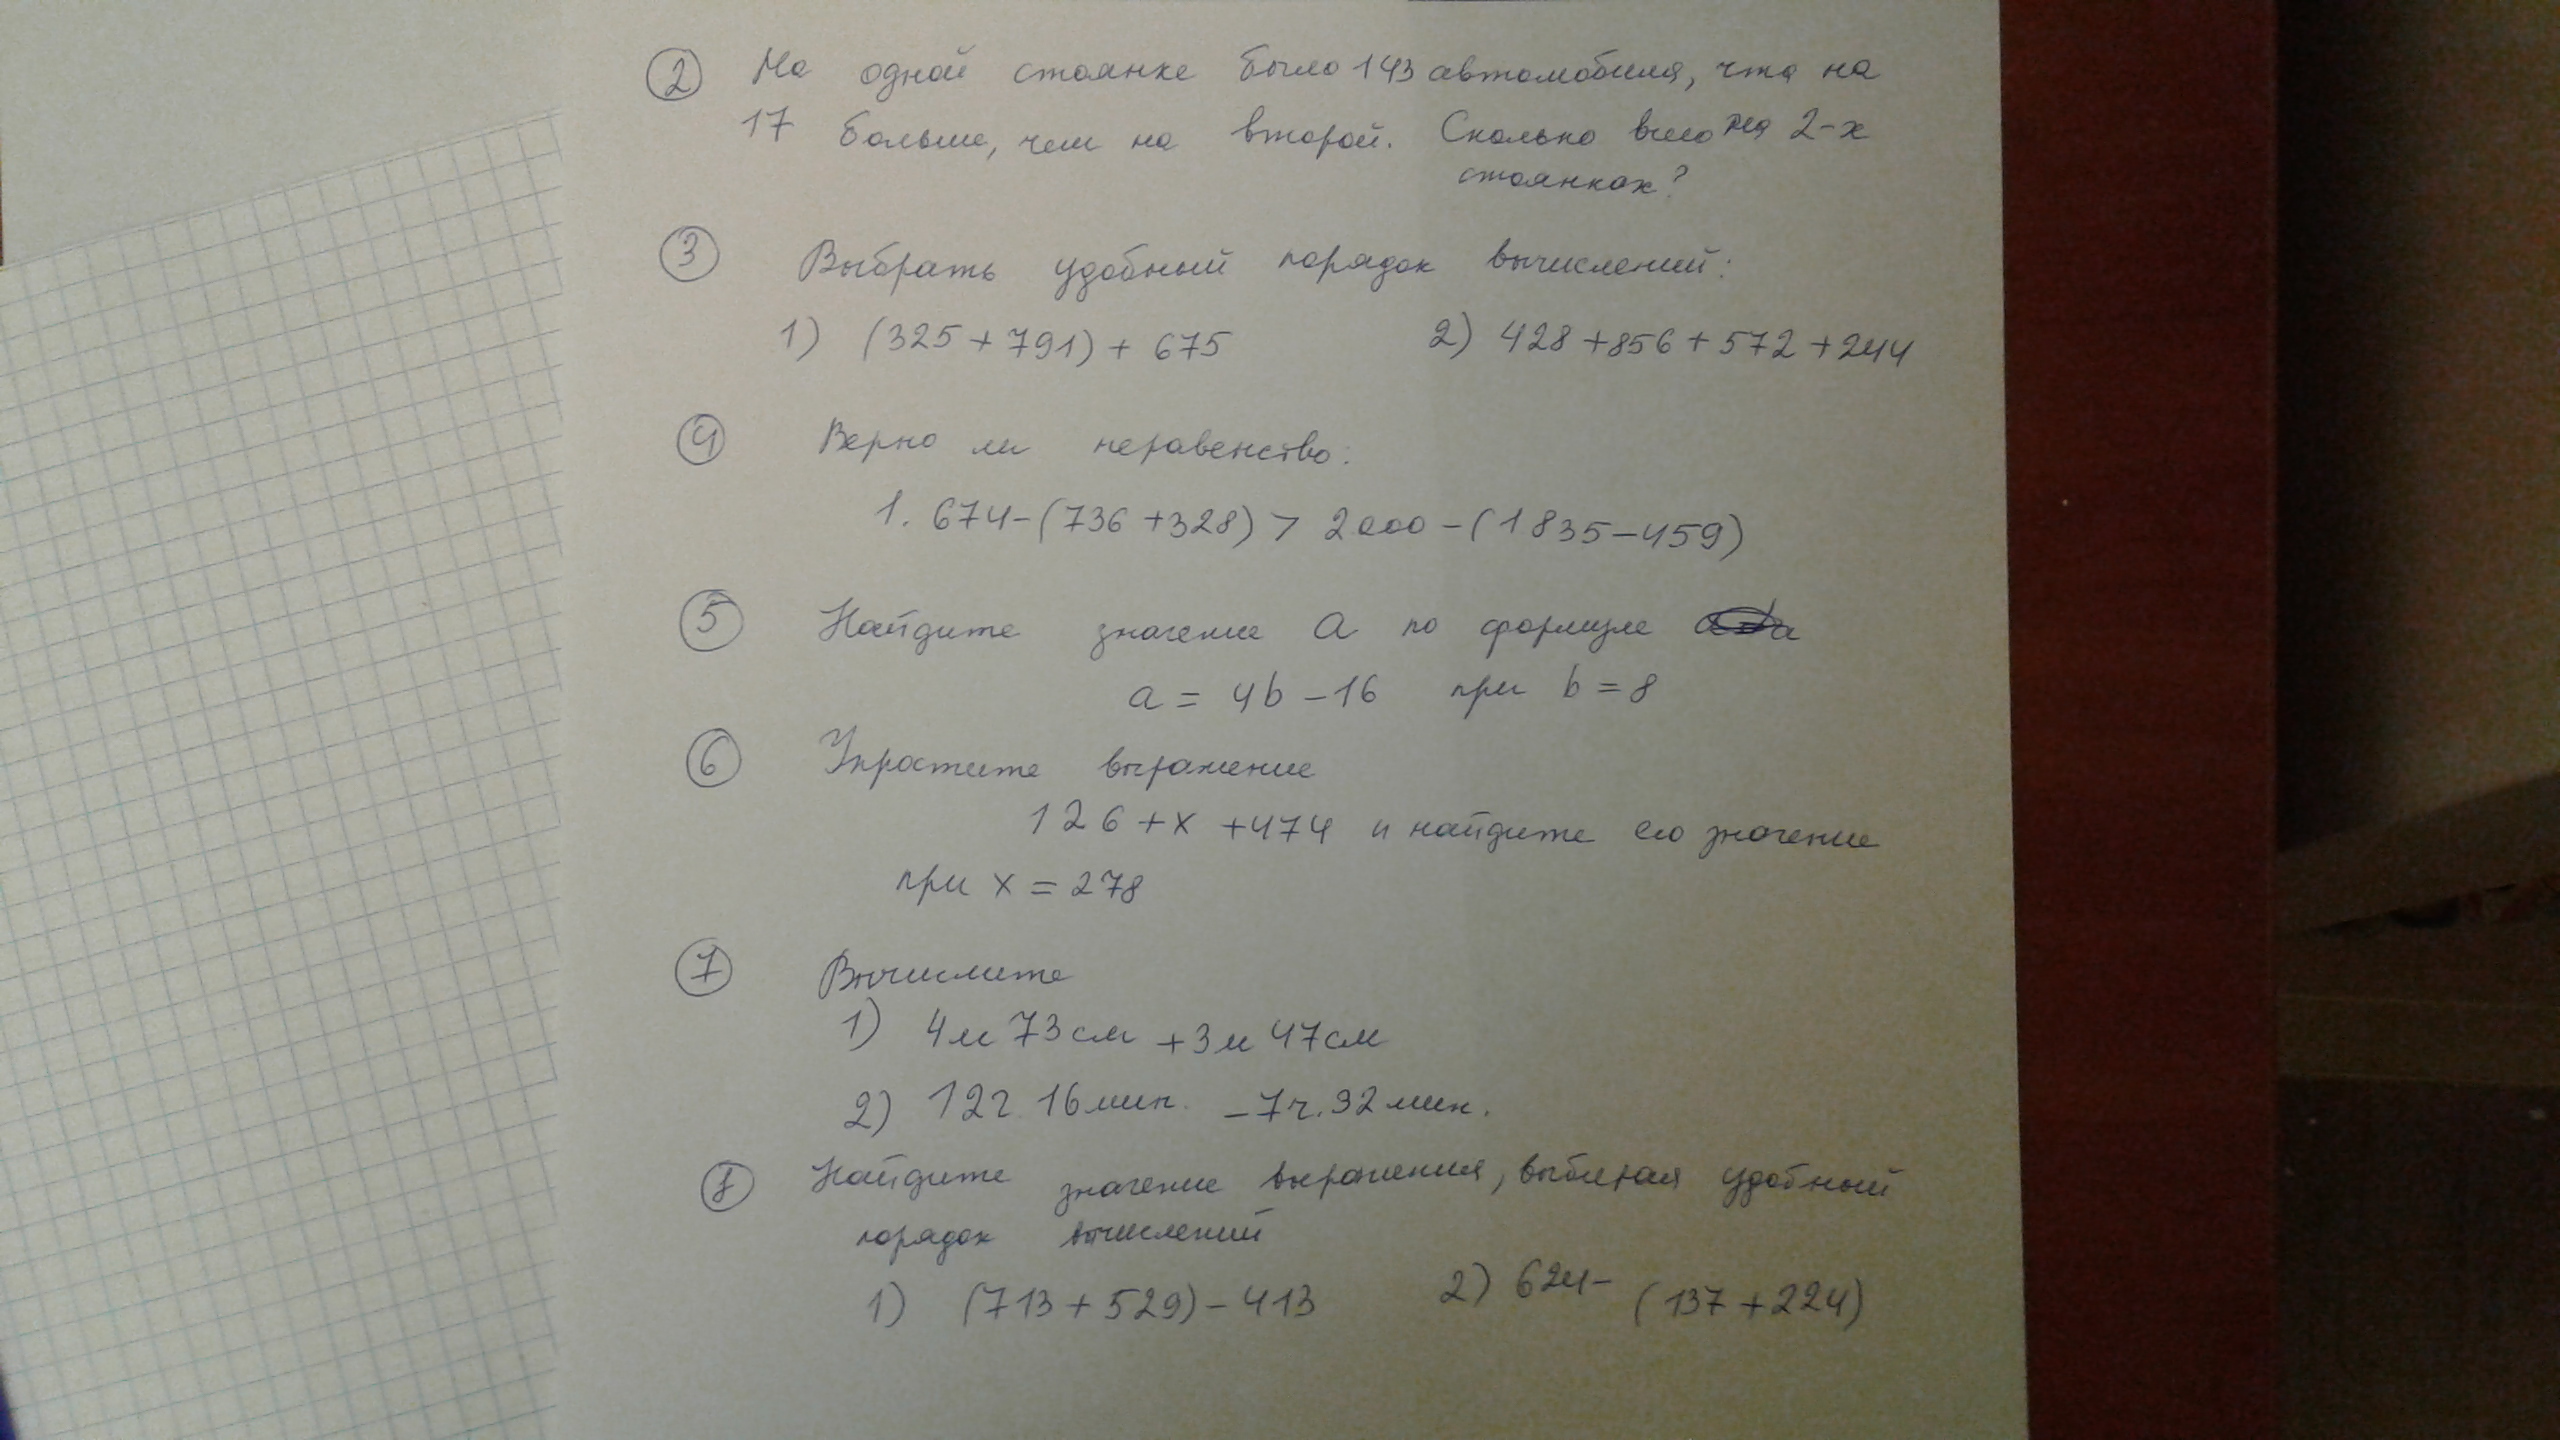 ② На одной стоянке было 143 автомобиля, что на
17 больше, чем на второй. Сколько всего на 2-х
стоянках?
③ Выбрать удобный порядок вычислений:
1) (325 + 791) + 675 2) 428 + 856 + 572 + 244
④ Верно ли неравенство:
1. 674 - (736 + 328) > 2000 - (1835 - 459)
⑤ Найдите значение a по формуле
a = 4b - 16 при b = 8
⑥ Упростите выражение
126 + x + 474 и найдите его значение
при x = 278
⑦ Вычислите
1) 4м 73см + 3м 47см
2) 12ч. 16мин. - 7ч. 32мин.
⑧ Найдите значение выражения, выбирая удобный
порядок вычислений
1) (713 + 529) - 413 2) 624 - (137 + 224)